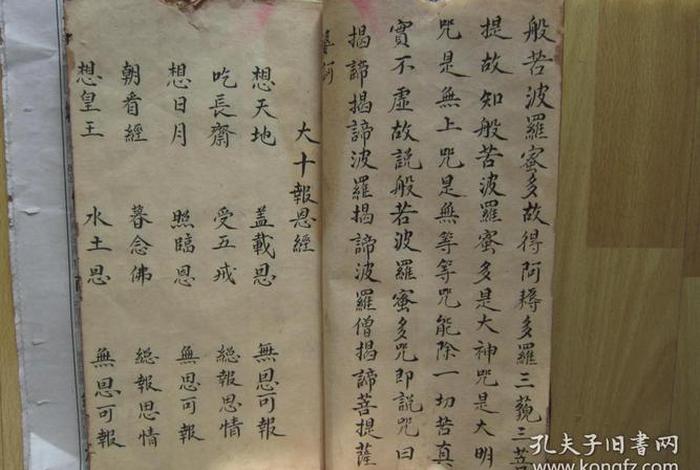 般若波羅蜜多故得阿耨多羅三藐三菩
提故知般若波羅蜜多是大神咒是大明
咒是無上咒是無等等咒能除一切苦真
實不虛故説般若波羅蜜多咒即説咒曰
揭諦揭諦波羅揭諦波羅僧揭諦菩提薩
大十報恩經
想天地 蓋載恩 無恩可報
吃長齋 受五戒 總報恩情
想日月 照臨恩 無恩可報
朝看經 暮念佛 總報恩情
想皇王 水土恩 無恩可報
孔夫子旧书网
www.kongfz.com